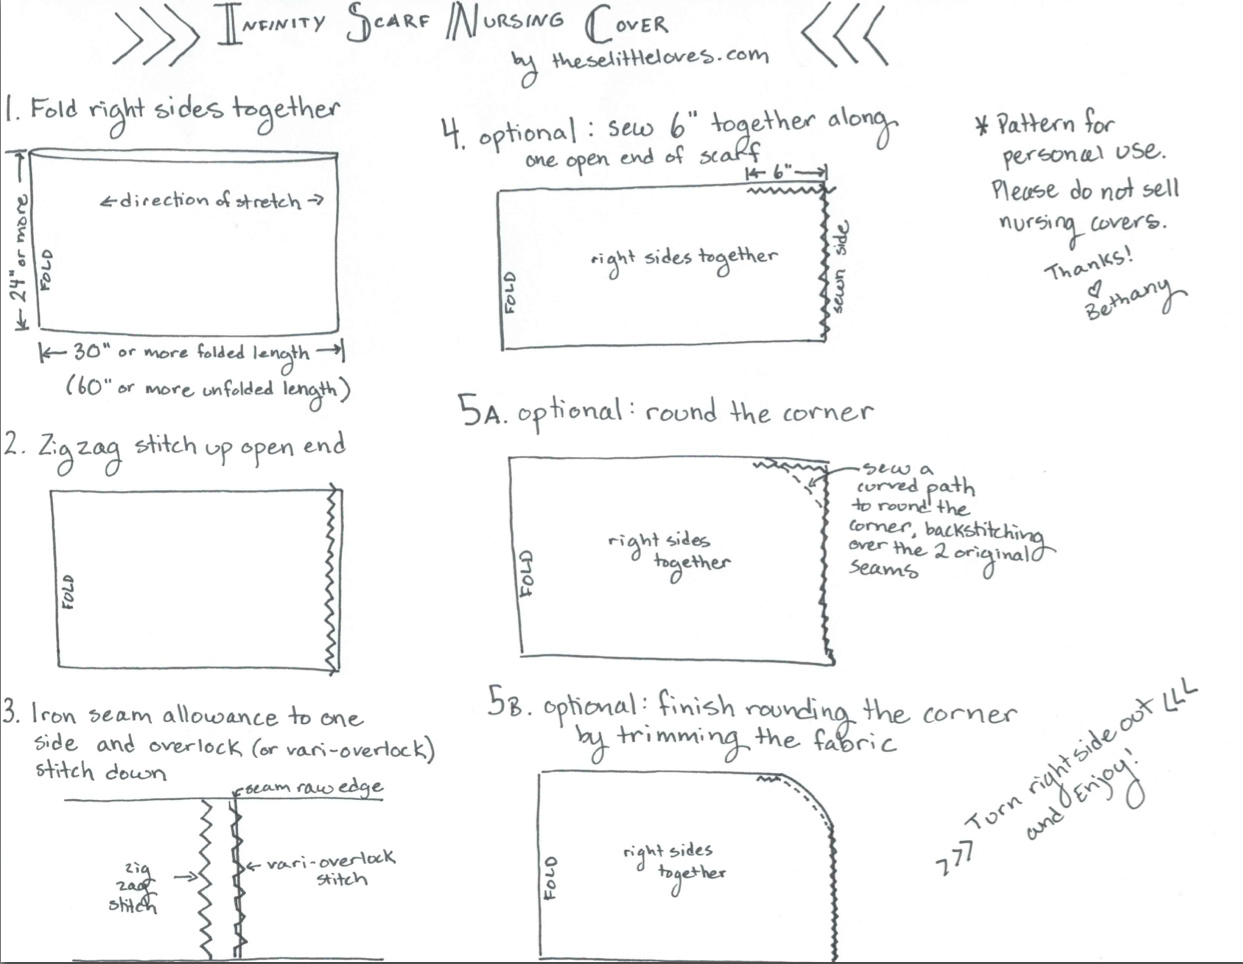 INFINITY SCARF NURSING COVER
by theselittleloves.com
1. Fold right sides together
24" or more
FOLD
direction of stretch
30" or more folded length
(60" or more unfolded length)
2. Zigzag stitch up open end
FOLD
3. Iron seam allowance to one
side and overlock (or vari-overlock)
stitch down
seam raw edge
zig
zag
stitch
vari-overlock
stitch
4. optional: sew 6" together along
one open end of scarf
6"
FOLD
right sides together
sewn side
5A. optional: round the corner
FOLD
right sides
together
sew a
curved path
to round the
corner, backstitching
over the 2 original
seams
5B. optional: finish rounding the corner
by trimming the fabric
FOLD
right sides
together
* Pattern for
personal use.
Please do not sell
nursing covers.
Thanks!
♡
Bethany
Turn right side out
and Enjoy!